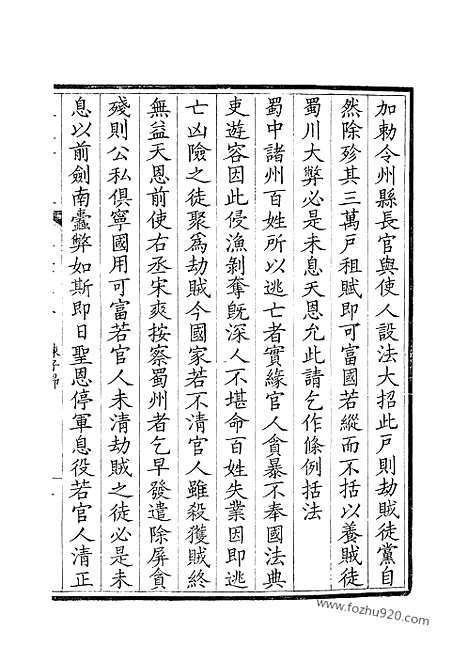 加勅令州縣長官與使人設法大招此戸則劫賊徒黨自
然除殄其三萬戸租賦即可富國若縱而不括以養賊徒
蜀川大弊必是未息天恩允此請乞作條例括法
蜀中諸州百姓所以逃亡者實緣官人貪暴不奉國法典
吏遊容因此侵漁剝奪旣深人不堪命百姓失業因即逃
亡凶險之徒聚爲劫賊今國家若不清官人雖殺獲賊終
無益天恩前使右丞宋爽按察蜀州者乞早發遣除屏貪
殘則公私俱寧國用可富若官人未清劫賊之徒必是未
息以前劍南蠹弊如斯即日聖恩停軍息役若官人清正
www.fozhu920.com